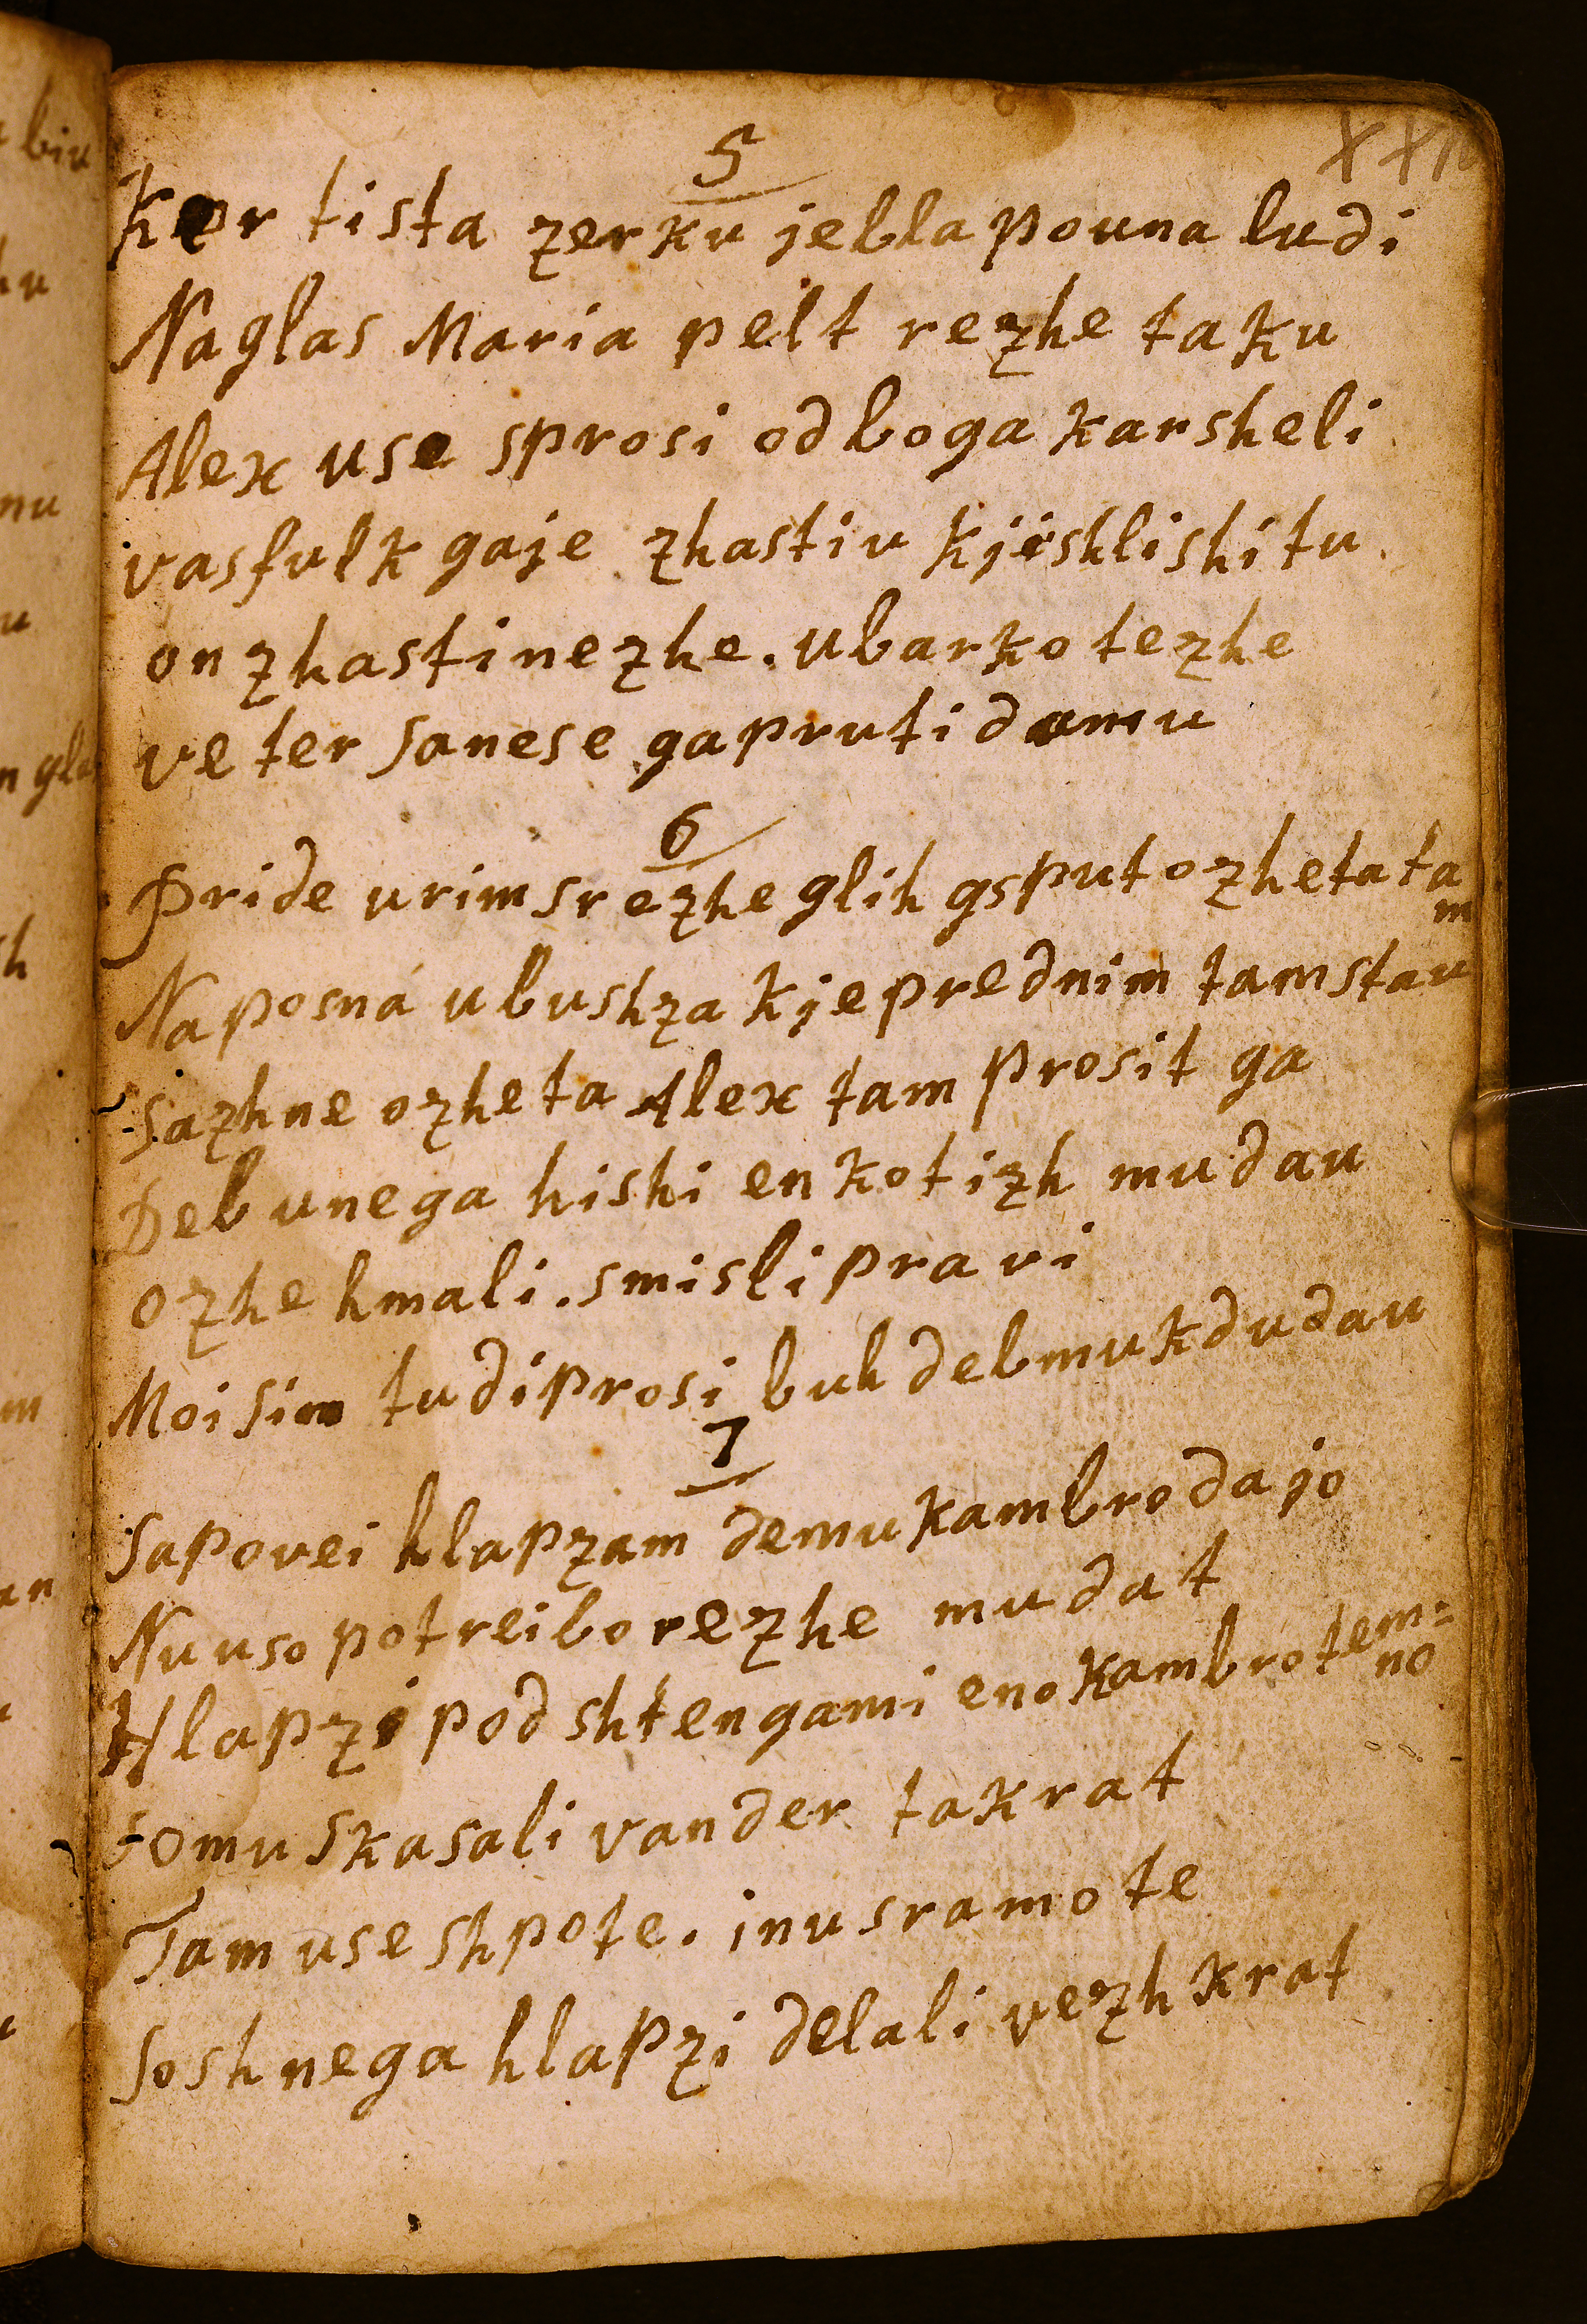 5
Ker tista zerku jebla pouna ludi
Naglas Maria pelt rezhe taku
Alex use sprosi od boga karsheli
vasfulk gaje zhastiu kjishlishi tu
on zhasti nezhe. ubarko tezhe
veter sanese ga pruti damu
6
Pride urim srezhe glih gsput ozheta ta
m
Na posna ubushza kje prednim tam stau
sazhne ozheta Alex tam prosit ga
Deb unega hishi en kotizh mu dau
ozhe hmali. smisli pravi
Moi sin tudi prosi buh deb mu kdu dau
7
Sapovei hlapzam demu kambro dajo
Nu uso potreibo rezhe mu dat
Hlapzi pod shtengami eno kambro tem=
no
so mu skasali vander takrat
Tam use shpote. inu sramote
So sh nega hlapzi delali vezhkrat